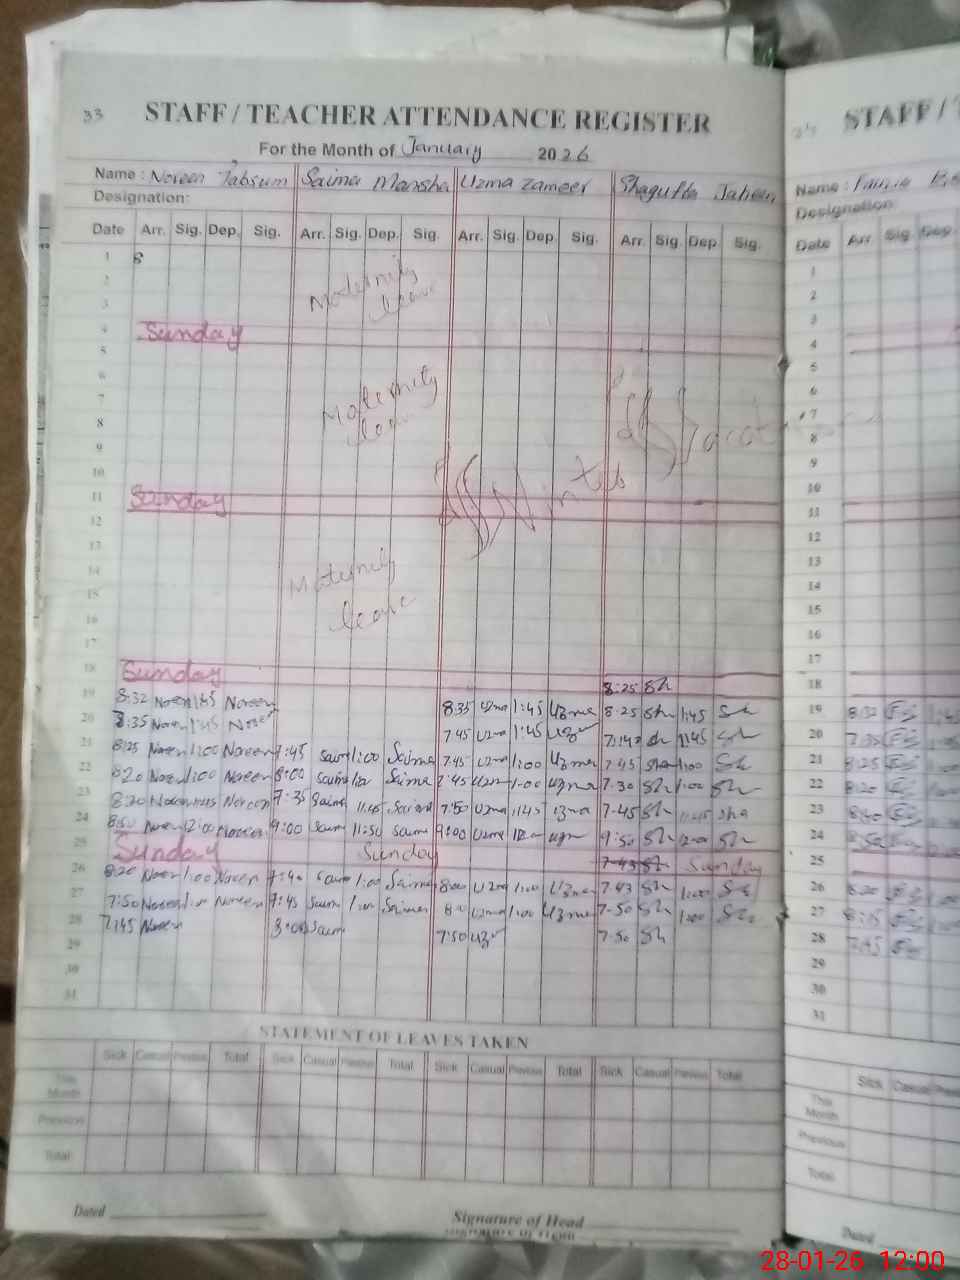 33
STAFF / TEACHER ATTENDANCE REGISTER
For the Month of January 2026
Name : Noreen Tabsum Saima Mansha Uzma Zameer Shagufta Jabeen
Designation:
Date Arr. Sig. Dep. Sig. Arr. Sig. Dep. Sig. Arr. Sig. Dep. Sig. Arr. Sig. Dep. Sig.
1 8
2 Maternity
3 leave
4 Sunday
5
6
7 Maternity
8 leave
9
10 Winter Vacation
11 Sunday
12
13
14 Maternity
15 leave
16
17
18 Sunday 8:25 Sh
19 8:32 Noreen 1:45 Noreen 8:35 Uzma 1:45 Uzma 8:25 Sh 1:45 Sh
20 8:35 Noreen 1:45 Noreen 7:45 Uzma 1:45 Uzma 7:42 Sh 1:45 Sh
21 8:25 Noreen 1:00 Noreen 7:45 Saima 1:00 Saima 7:45 Uzma 1:00 Uzma 7:45 Sha 1:00 Sh
22 8:20 Noreen 1:00 Noreen 8:00 Saima Saima 7:45 Uzma 1:00 Uzma 7:30 Sh 1:00 Sh
23 8:20 Noreen Noreen 7:35 Saima 11:45 Saima 7:50 Uzma 11:45 Uzma 7:45 Sh 11:45 Sha
24 8:50 Noreen 12:00 Noreen 9:00 Saima 11:50 Saima 9:00 Uzma Uzma 9:50 Sh 12:00 Sh
25 Sunday Sunday 7:43 Sh Sunday
26 8:20 Noreen 1:00 Noreen 7:40 Saima 1:00 Saima 8:00 Uzma 1:00 Uzma 7:43 Sh 1:00 Sh
27 7:50 Noreen 1:00 Noreen 7:45 Saima 1:00 Saima 8:00 Uzma 1:00 Uzma 7:50 Sh 1:00 Sh
28 7:45 Noreen 8:00 Saima 7:50 Uzma 7:50 Sh
29
30
31
STATEMENT OF LEAVES TAKEN
Sick Casual Previous Total Sick Casual Previous Total Sick Casual Previous Total Sick Casual Previous Total
This Month
Previous
Total
Dated
Signature of Head
STAFF /
Name :
Designation:
Date Arr. Sig. Dep.
1
2
3
4
5
6
7
8
9
10
11
12
13
14
15
16
17
18
19 8:32
20 7:35
21 8:25
22 8:20
23 8:40
24 8:50
25
26 8:20
27 8:15
28 7:45
29
30
31
Sick Casual
This Month
Previous
Total
Dated
28-01-26 12:00